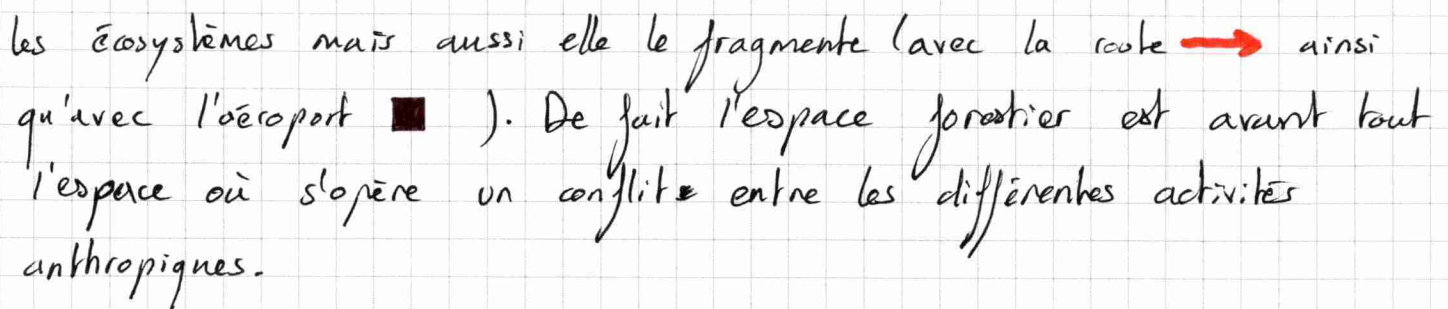 les écosystèmes mais aussi elle le fragmente (avec la route → ainsi
qu'avec l'aéroport ■ ). De fait l'espace forestier est avant tout
l'espace où s'opère un conflit entre les différentes activités
anthropiques.